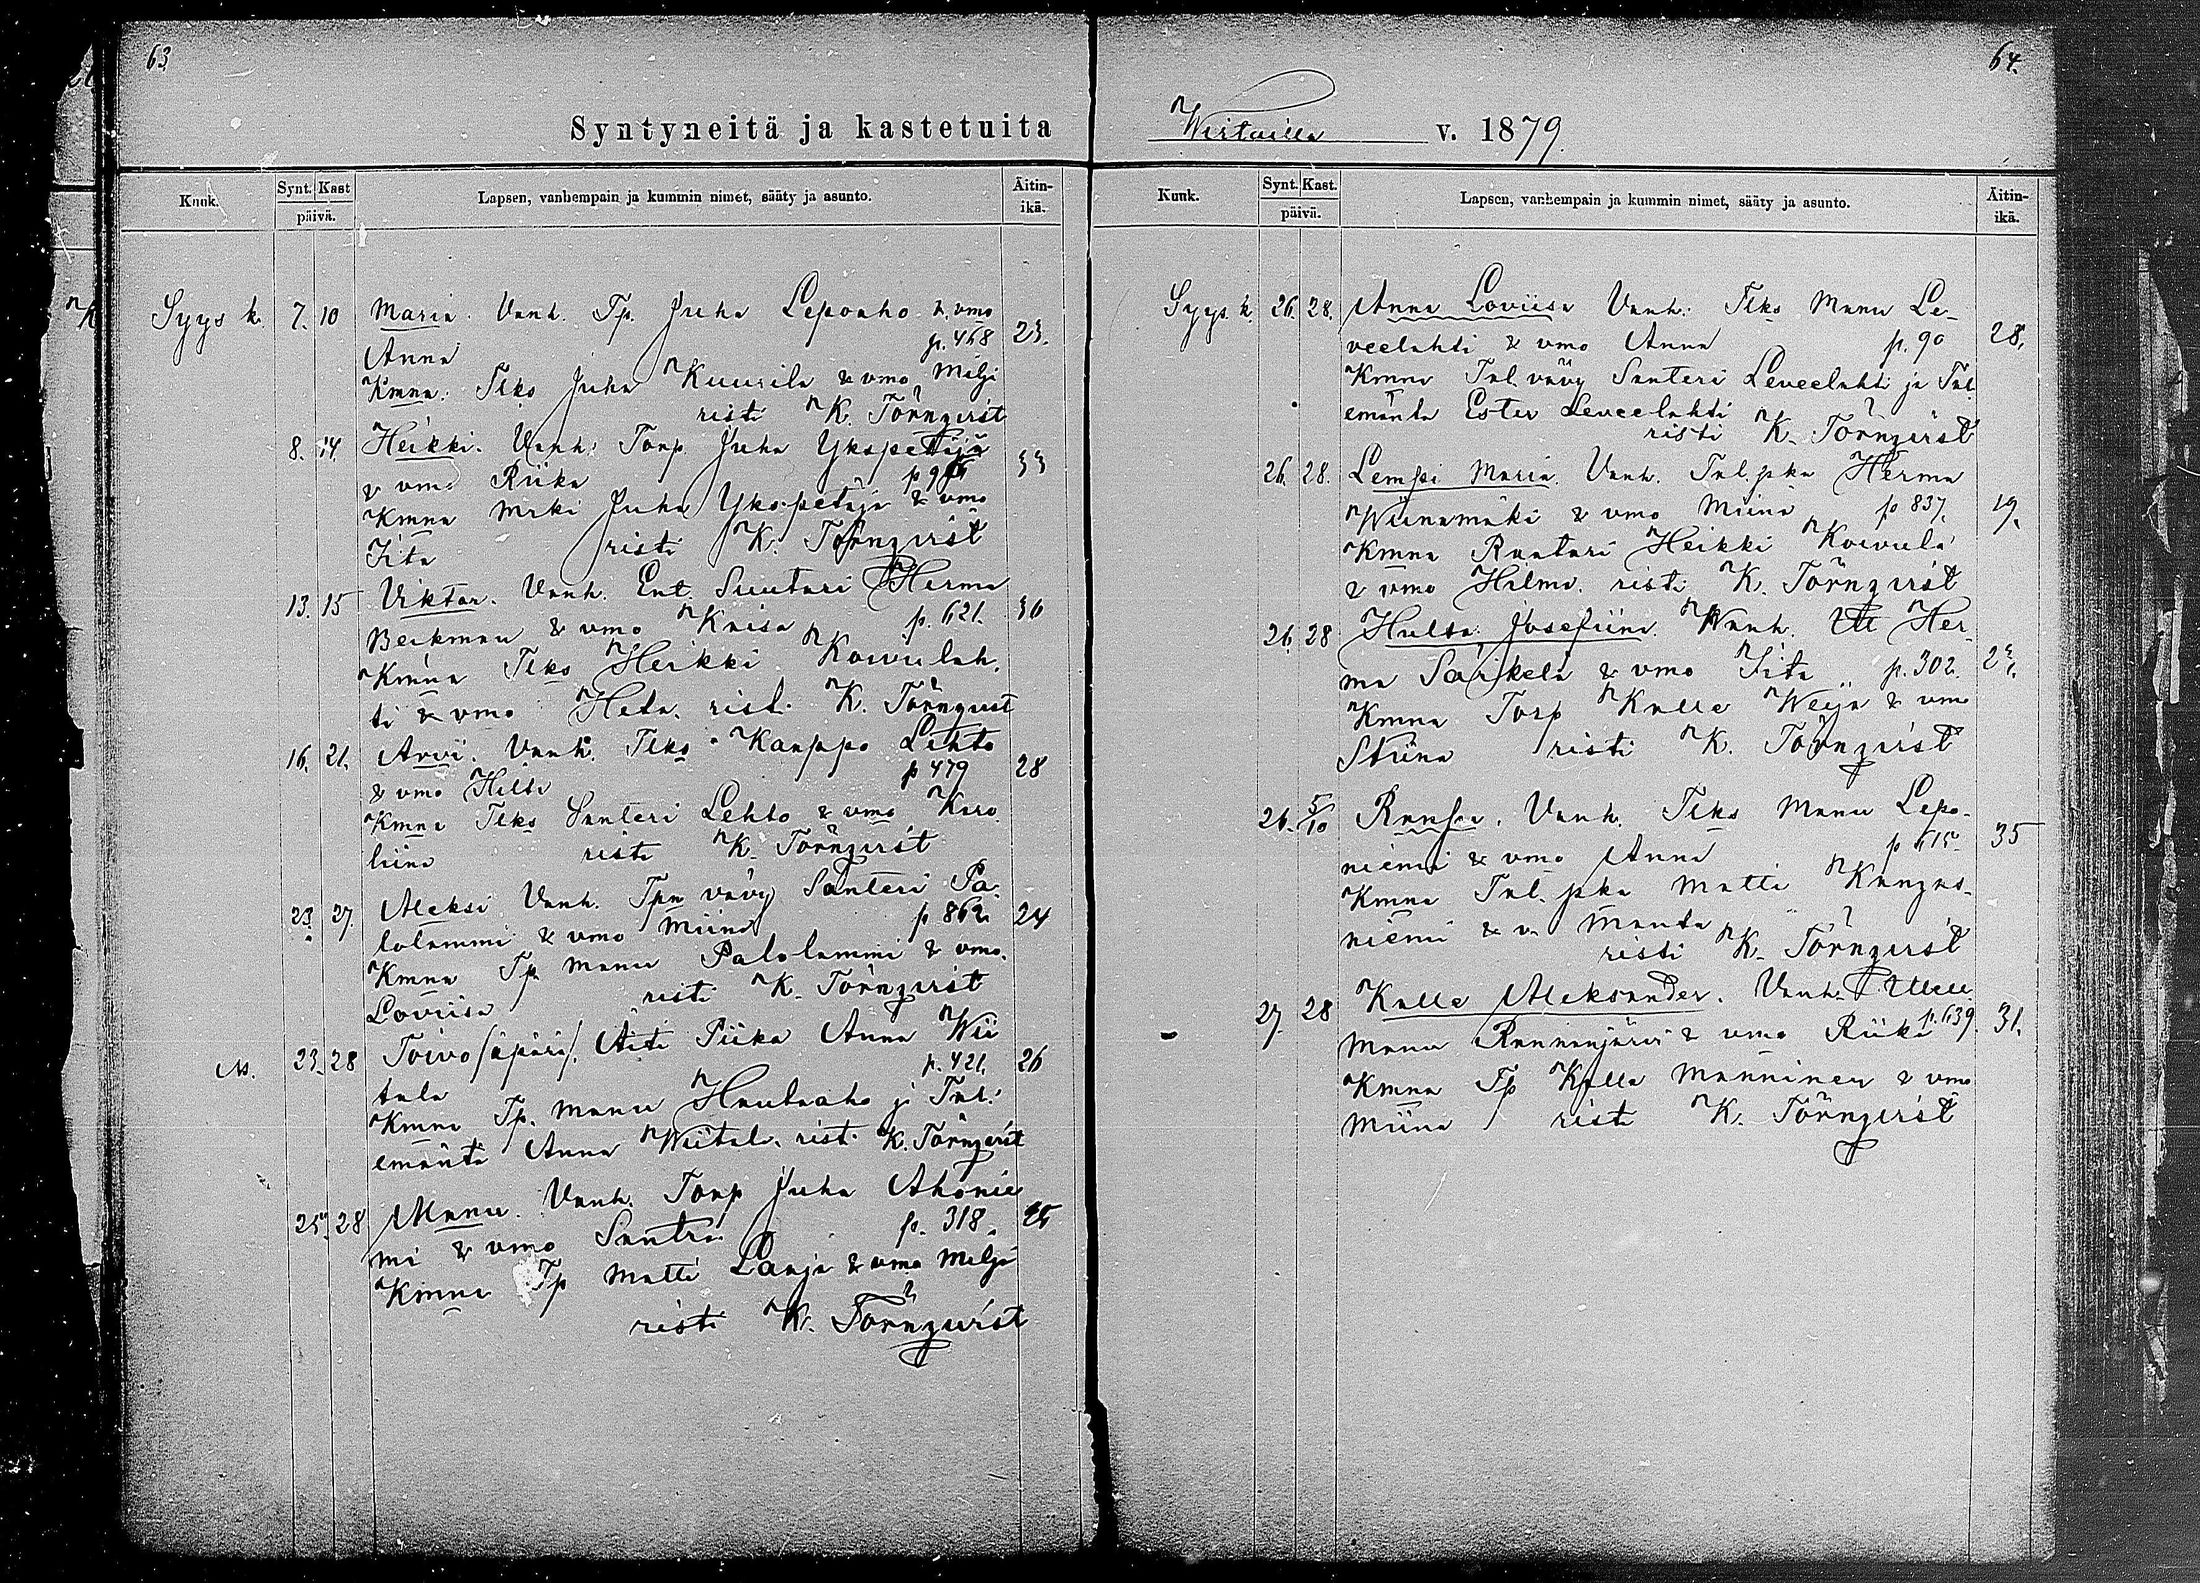 63
Syntyneitä ja kastetuita
Kuuk. Synt. Kast päivä. Lapsen, vanhempain ja kummin nimet, sääty ja asunto. Äitin-ikä.
Syys k. 7. 10 Maria. Vanh. Tp. Juha Lepoaho & vmo
Anna p. 468 23.
Kmna. Tlks Juha Kuurila & vmo Milji
risti K. Törnqvist
8. 14. Heikki. Vanh: Torp Juha Ykspetäjä
& vmo Riika 33
Kmna Mrki Juha Ykspetäjä & vmo
Iita risti K. Törnqvist
13. 15 Viktor. Vanh. Ent. Suutari Herma
Beckman & vmo Kaisa p. 621. 36
Kmna Tlks Heikki Koivulah.
ti & vmo Heta. risti K. Törnqvist
16. 21. Arvi. Vanh. Tlks Kaappo Lehto
& vmo Hilta p 479 28
Kmna Tlks Santeri Lehto & vmo Karo
liina risti K. Törnqvist
23. 27. Aleksi Vanh. Tpn vävy Santeri Pa
lolammi & vmo Miina p 862. 24
Kmna Tp. Manu Palolammi & vmo.
Loviisa risti K. Törnqvist
23. 28 Toivo /äpärä/. Äiti Piika Anna Wii
tala p. 421. 26
Kmna Tp. Manu Hautaaho ja Tal.
emäntä Anna Wiitala. risti K. Törnqvist
25. 28 Manu. Vanh. Torp Juha Ahonie
mi & vmo Santra p. 318.
Kmna Tp Matti Laaja & vmo Milja
risti K. Törnqvist
64.
Wirtailla v. 1879.
Kuuk. Synt. Kast. päivä. Lapsen, vanhempain ja kummin nimet, sääty ja asunto. Äitin-ikä.
Syys k. 26. 28. Anna Loviisa Vanh. Tlks Manu Le-
veelahti & vmo Anna p. 90 28.
Kmna Tal. vävy Santeri Leveelahti ja Tal.
emäntä Ester Leveelahti
risti K. Törnqvist
26. 28. Lempi Maria. Vanh. Tal. pka Herma
Wiinamäki & vmo Miina p 837. 19.
Kmna Räätäri Heikki Koivula
& vmo Hilma. risti K. Törnqvist
26. 28 Hulda Josefiina. Vanh. Her-
ma Särkelä & vmo Iita p. 302.
Kmna Torp Kalle Weija & vmo
Stiina risti K. Törnqvist
26. 5/10 Ranha. Vanh. Tlks Manu Lepo-
niemi & vmo Anna p 615 35
Kmna Tal. pka Matti Kangas-
niemi & v. Manta
risti K. Törnqvist
27. 28 Kalle Aleksander. Vanh.
Manu Rannanjärvi & vmo Riika p. 639. 31.
Kmna Tp Kalle Manninen & vmo
Miina risti K. Törnqvist